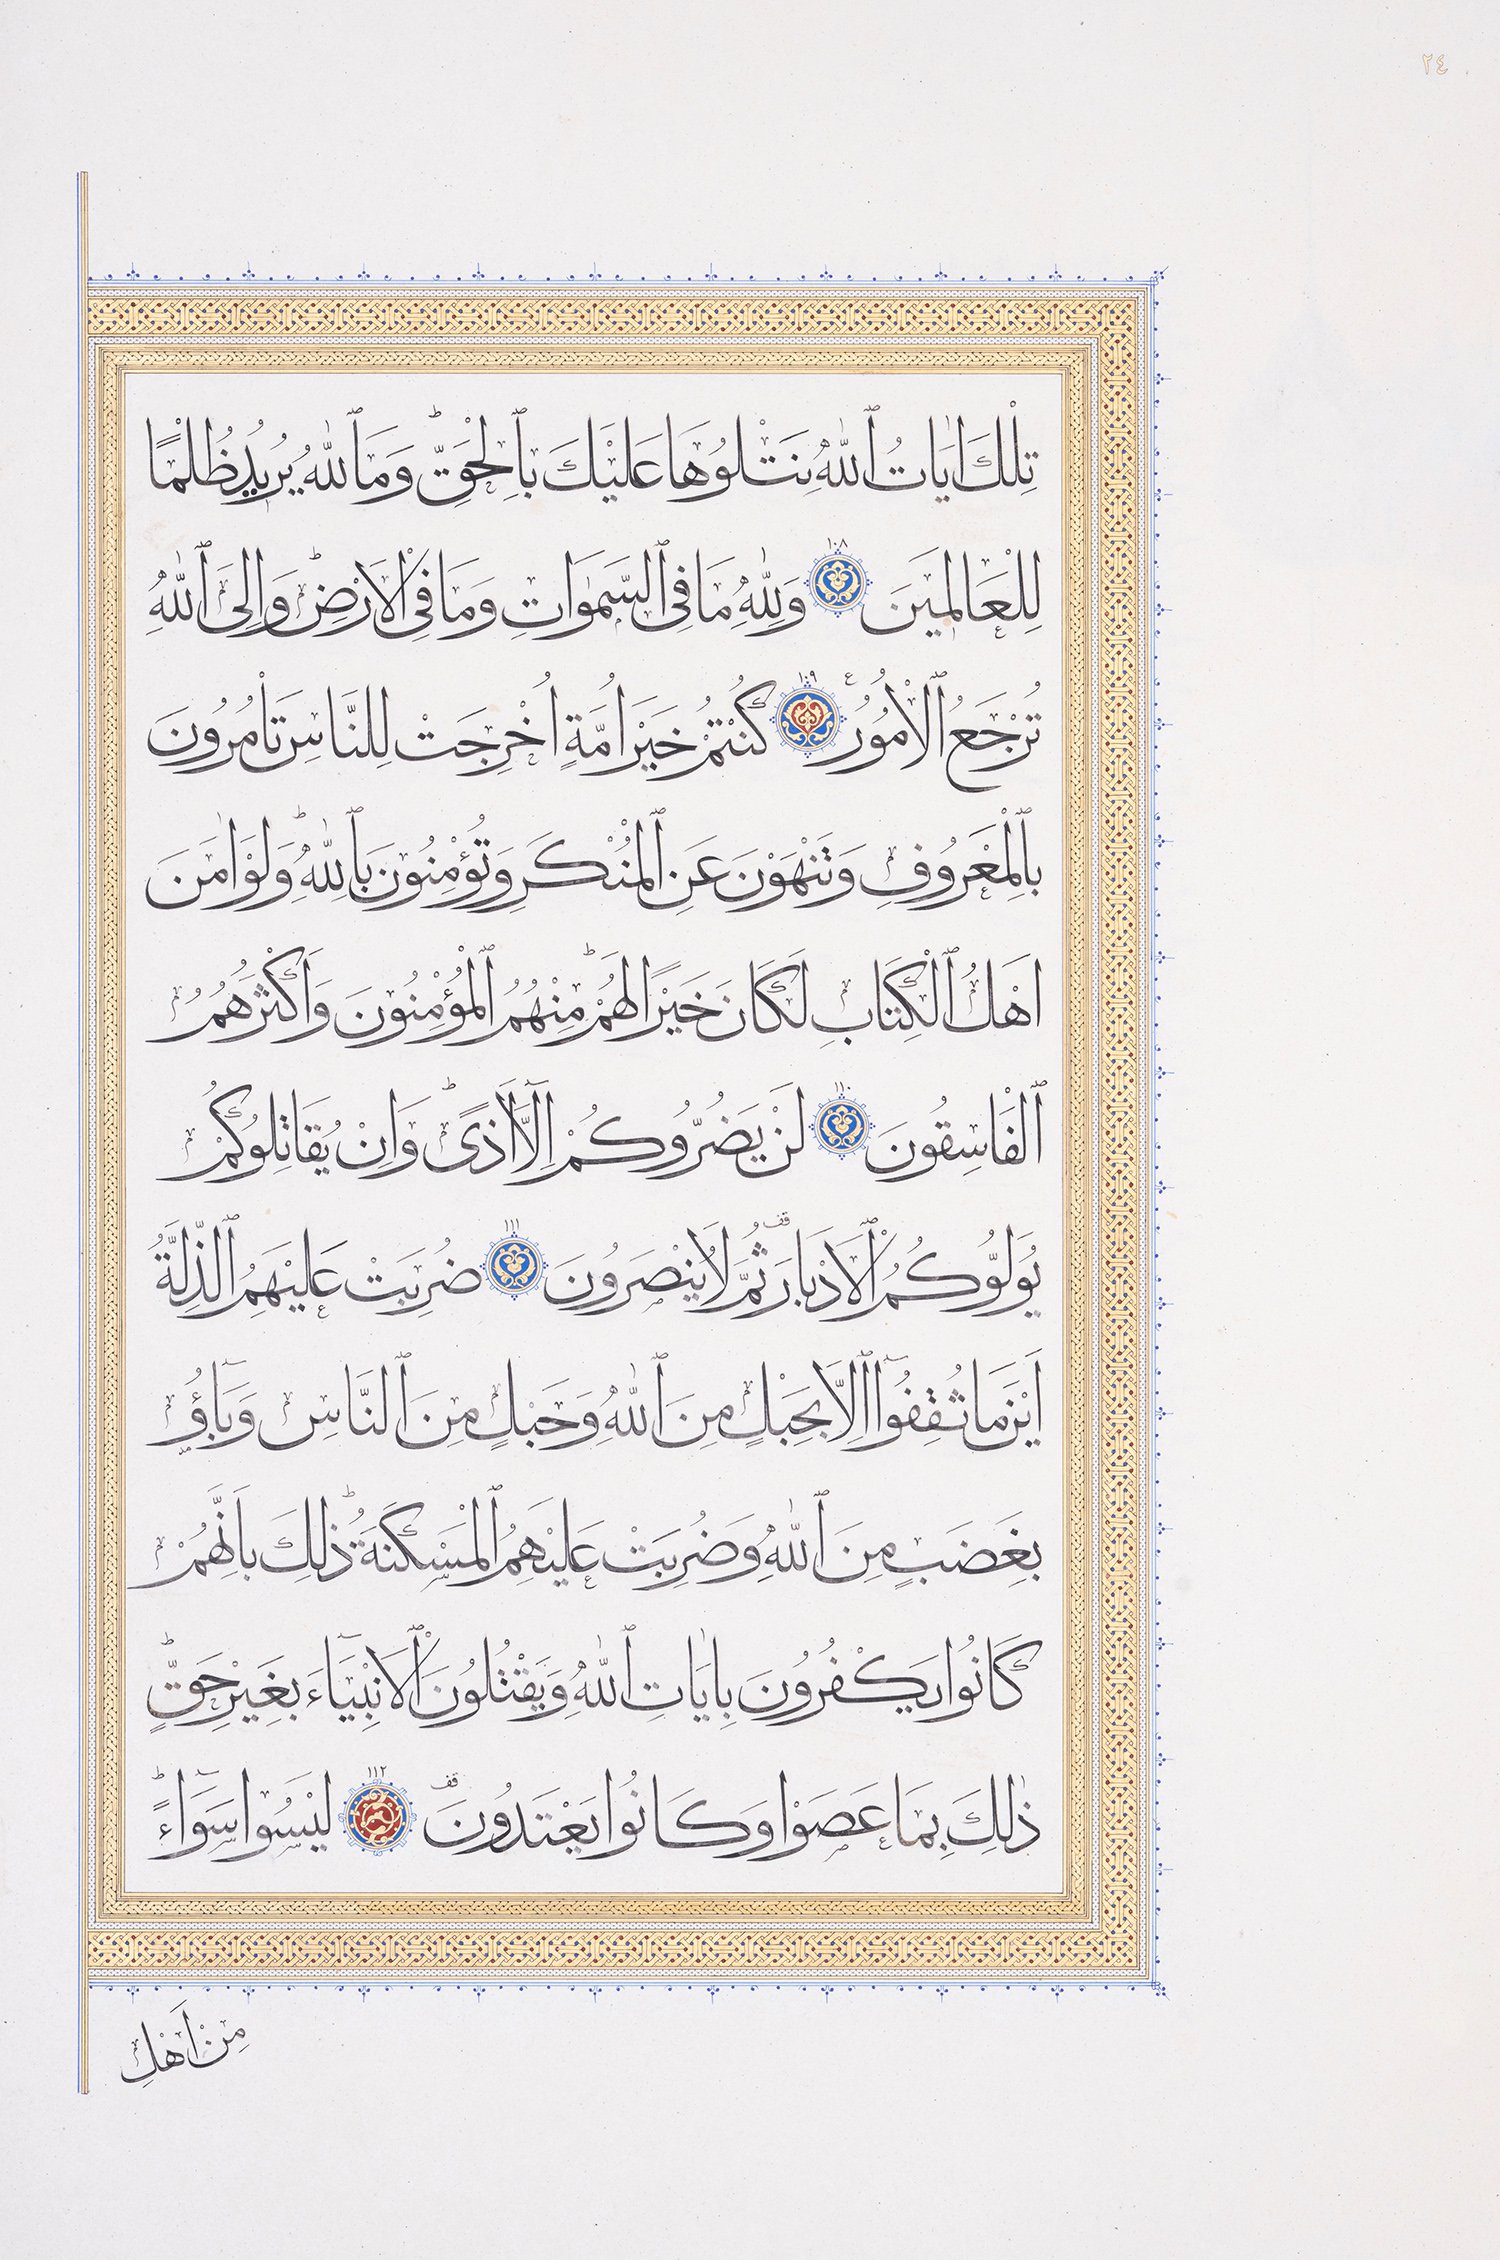 ٢٤
تِلْكَ اٰيَاتُ ٱللّٰهِ نَتْلُوهَا عَلَيْكَ بِٱلْحَقِّ ؕ وَمَا ٱللّٰهُ يُرِيدُ ظُلْمًا
لِلْعَالَمِينَ ١٠٨ وَلِلّٰهِ مَا فِى ٱلسَّمٰوَاتِ وَمَا فِى ٱلْاَرْضِ ؕ وَاِلَى ٱللّٰهِ
تُرْجَعُ ٱلْاُمُورُ ع ١٠٩ كُنْتُمْ خَيْرَ اُمَّةٍ اُخْرِجَتْ لِلنَّاسِ تَأْمُرُونَ
بِٱلْمَعْرُوفِ وَتَنْهَوْنَ عَنِ ٱلْمُنْكَرِ وَتُؤْمِنُونَ بِٱللّٰهِ ؕ وَلَوْ اٰمَنَ
اَهْلُ ٱلْكِتَابِ لَكَانَ خَيْرًا لَهُمْ ؕ مِنْهُمُ ٱلْمُؤْمِنُونَ وَاَكْثَرُهُمُ
ٱلْفَاسِقُونَ ١١٠ لَنْ يَضُرُّوكُمْ اِلَّٓا اَذًى ؕ وَاِنْ يُقَاتِلُوكُمْ
يُوَلُّوكُمُ ٱلْاَدْبَارَ قف ثُمَّ لَا يُنْصَرُونَ ١١١ ضُرِبَتْ عَلَيْهِمُ ٱلذِّلَّةُ
اَيْنَ مَا ثُقِفُوٓا اِلَّا بِحَبْلٍ مِنَ ٱللّٰهِ وَحَبْلٍ مِنَ ٱلنَّاسِ وَبَٓاؤُ
بِغَضَبٍ مِنَ ٱللّٰهِ وَضُرِبَتْ عَلَيْهِمُ ٱلْمَسْكَنَةُ ؕ ذٰلِكَ بِاَنَّهُمْ
كَانُوا يَكْفُرُونَ بِاٰيَاتِ ٱللّٰهِ وَيَقْتُلُونَ ٱلْاَنْبِيَٓاءَ بِغَيْرِ حَقٍّ ؕ
ذٰلِكَ بِمَا عَصَوْا وَكَانُوا يَعْتَدُونَ قف ١١٢ لَيْسُوا سَوَٓاءً ؕ
مِنْ اَهْلِ